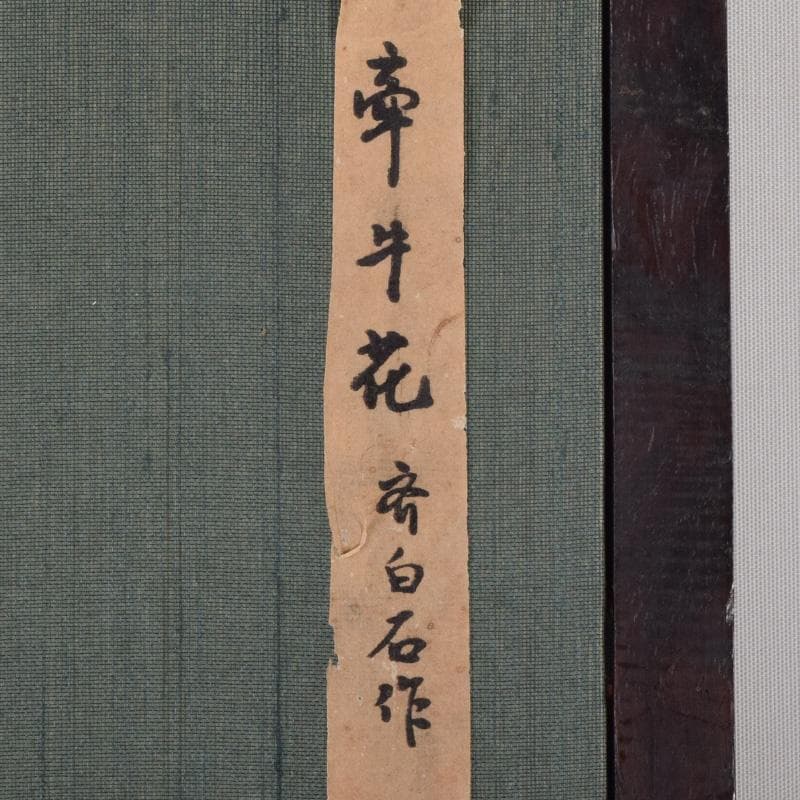 牽牛花 齐白石作